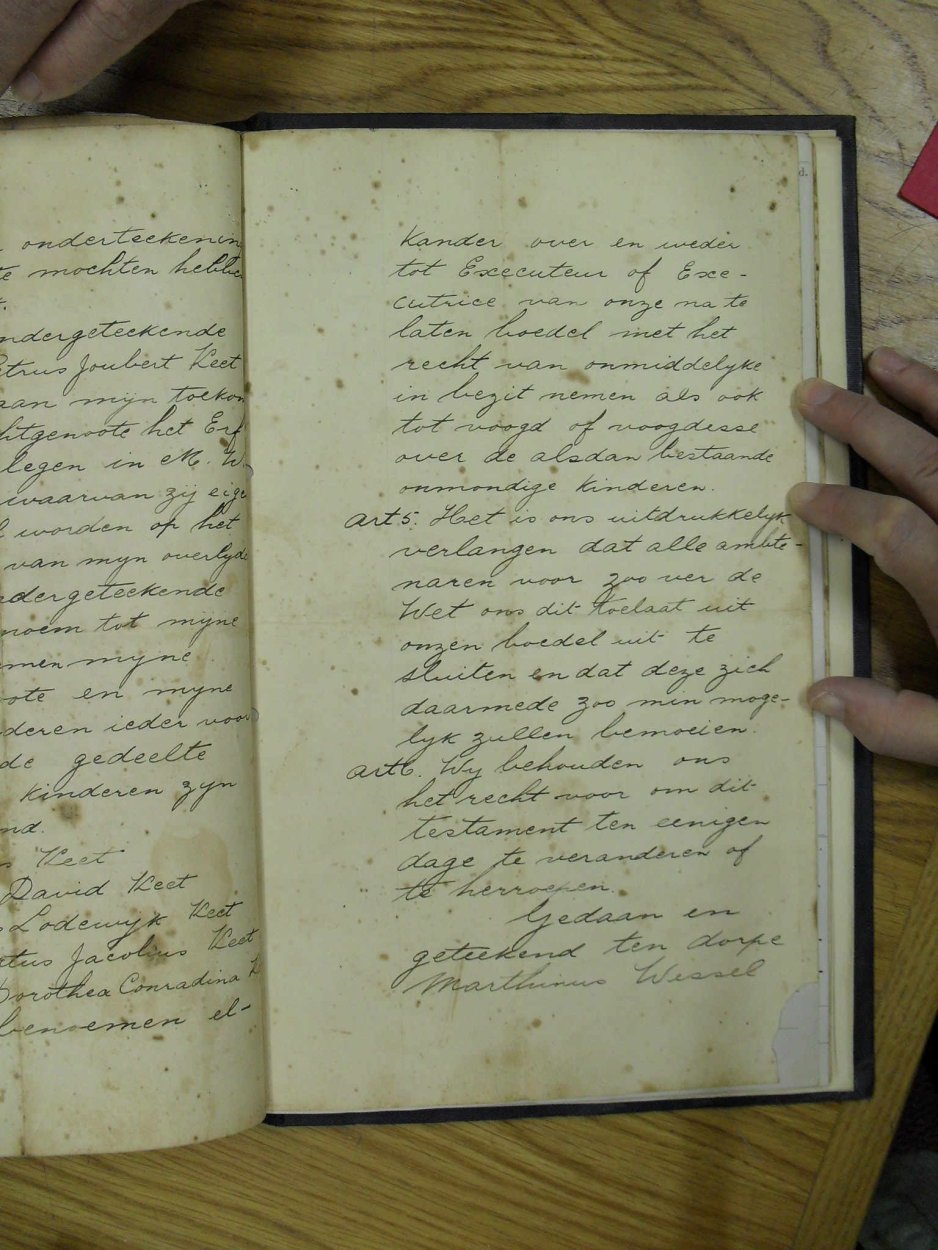 onderteekenin
te mochten hebbe
t.
ndergeteekende
etrus Joubert Keet
aan mijn toekom
htgenoote het Erf
legen in M. W.
waarvan zij eige
l worden op het
van mijn overlyde
ndergeteekende
noem tot myne
men myne
oote en myne
deren ieder voor
de gedeelte
kinderen zyn
nd.
s Keet
David Keet
s Lodewyk Keet
atus Jacobus Keet
Dorothea Conradina K
benoemen el-
kander over en weder
tot Executeur of Exe-
cutrice van onze na te
laten boedel met het
recht van onmiddelyke
in bezit nemen als ook
tot voogd of voogdesse
over de alsdan bestaande
onmondige kinderen.
art 5. Het is ons uitdrukkelyk
verlangen dat alle ambte-
naren voor zoo ver de
Wet ons dit toelaat uit
onzen boedel uit te
sluiten en dat deze zich
daarmede zoo min moge-
lyk zullen bemoeien.
art 6. Wy behouden ons
het recht voor om dit
testament ten eenigen
dage te veranderen of
te herroepen.
Gedaan en
geteekend ten dorpe
Marthinus Wessel
d.